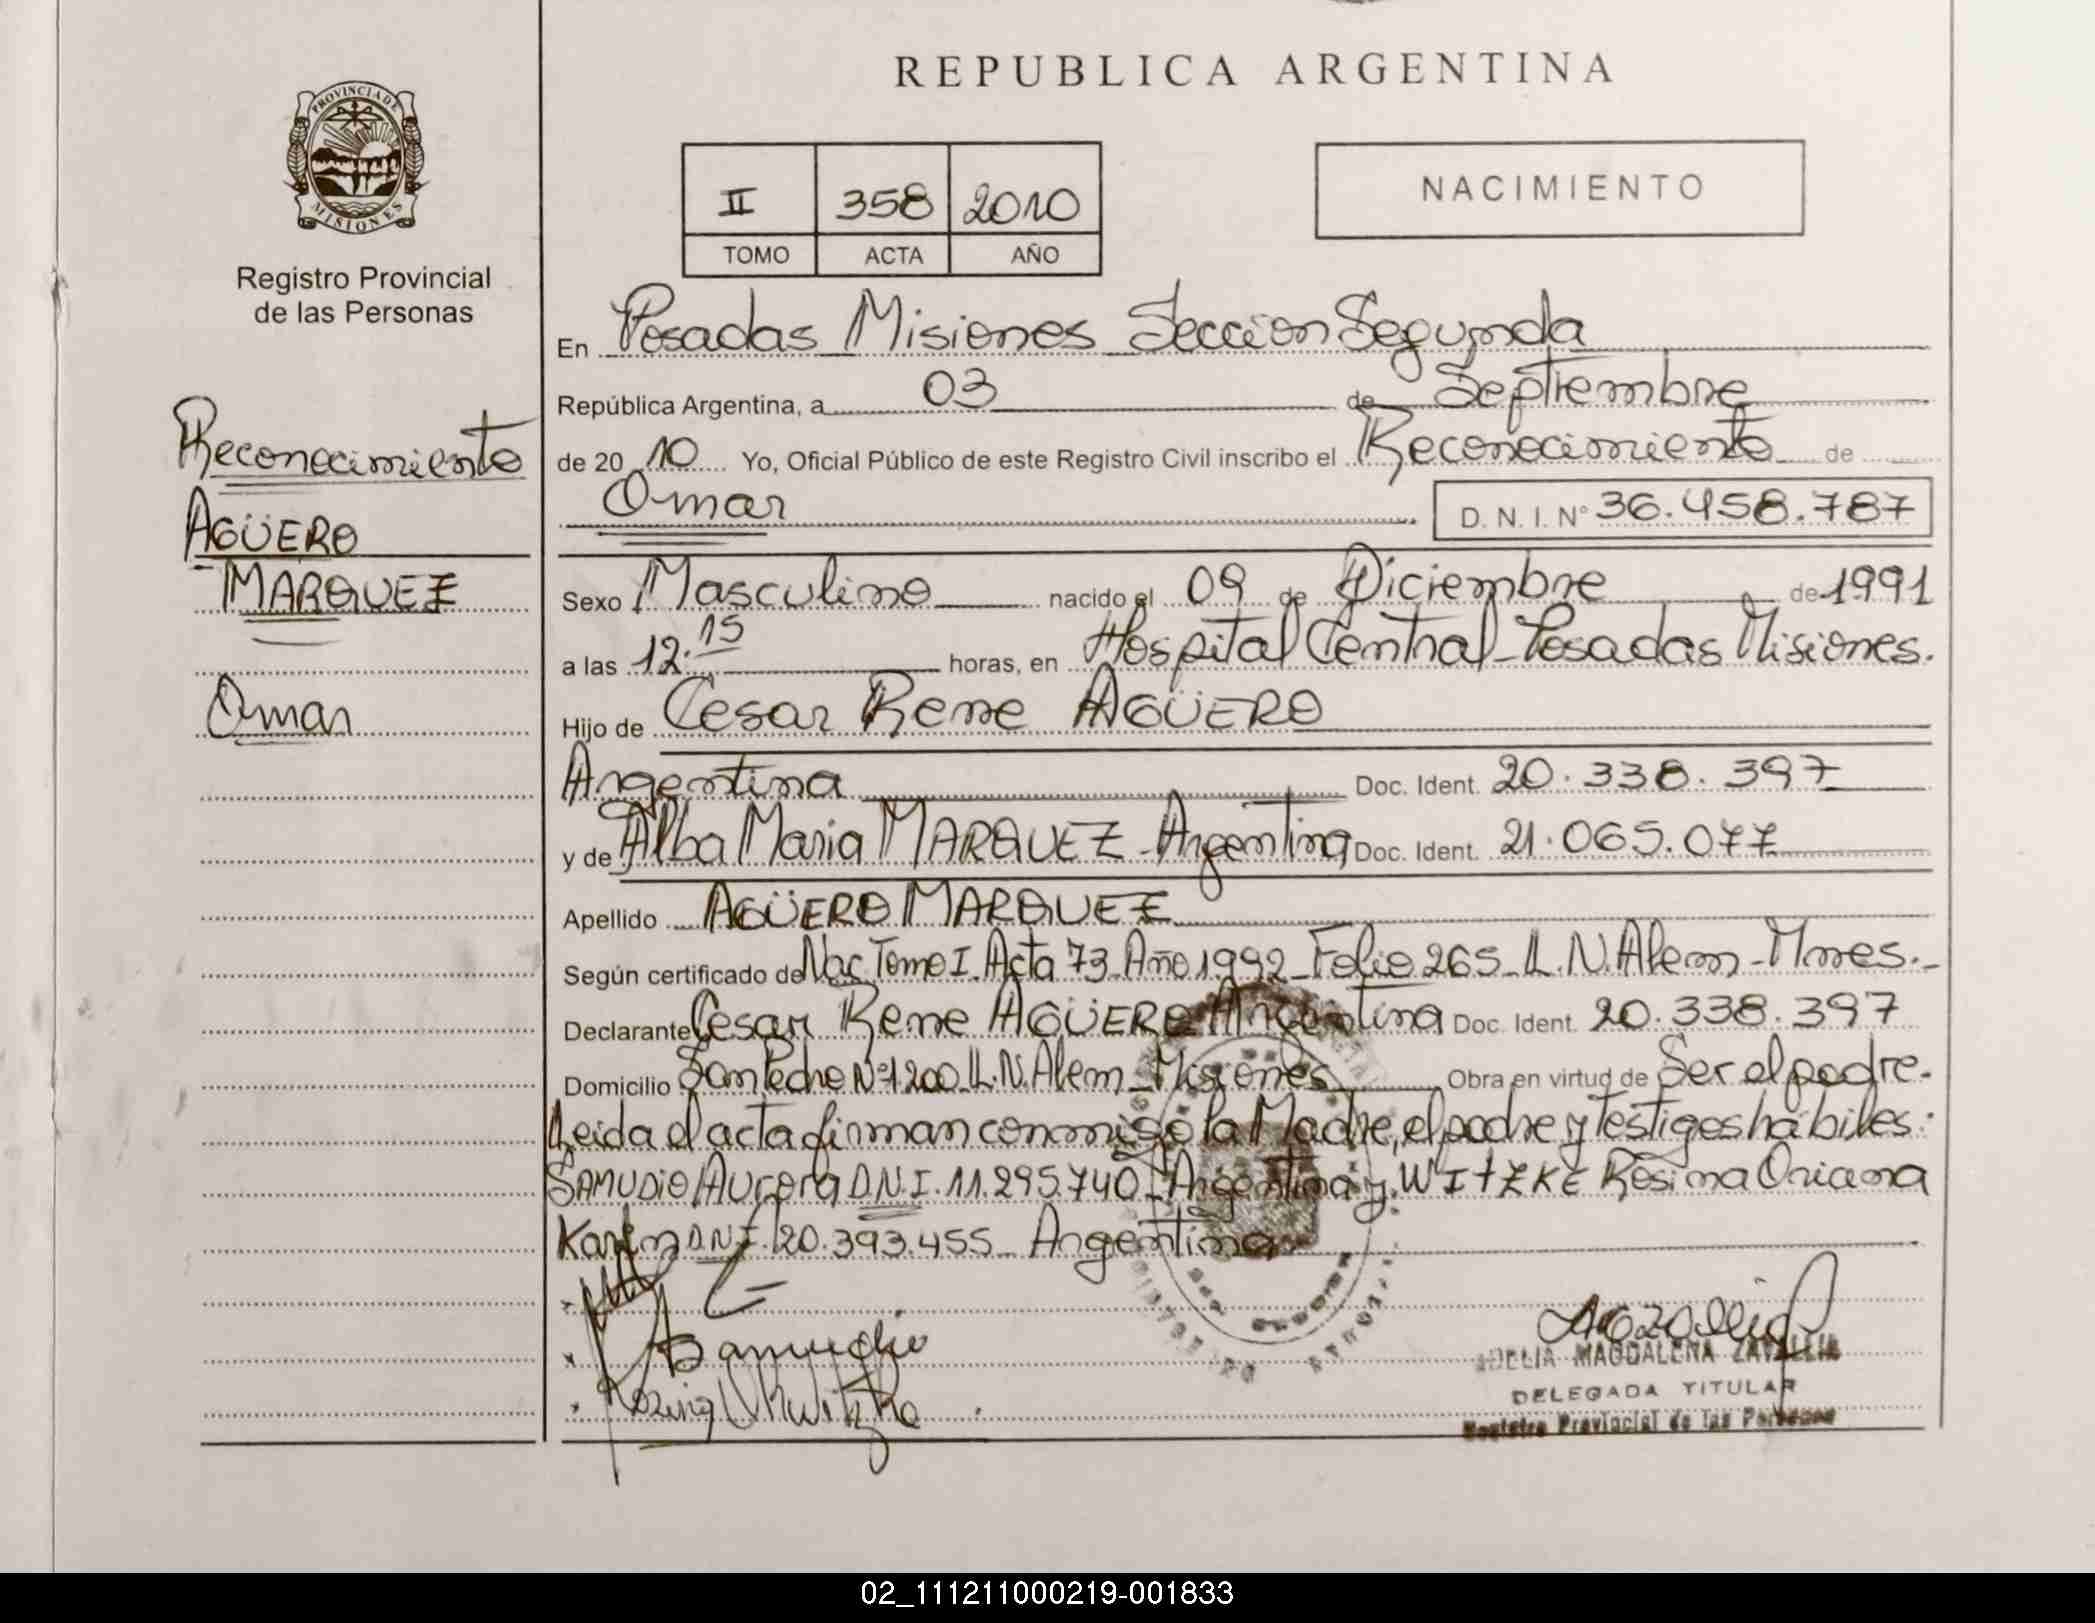 REPUBLICA ARGENTINA
PROVINCIA DE
MISIONES
Registro Provincial
de las Personas
II 358 2010
TOMO ACTA AÑO
NACIMIENTO
Reconocimiento
AGÜERO
MARQUEZ
Omar
En Posadas Misiones Seccion Segunda
República Argentina, a 03 de Septiembre
de 20 10 Yo, Oficial Público de este Registro Civil inscribo el Reconocimiento de
Omar D. N. I. N° 36.458.787
Sexo Masculino nacido el 09 de Diciembre de 1991
a las 12.15 horas, en Hospital Central - Posadas Misiones.
Hijo de Cesar Rene AGÜERO
Argentina Doc. Ident. 20.338.397
y de Alba Maria MARQUEZ - Argentina Doc. Ident. 21.065.077
Apellido AGÜERO MARQUEZ
Según certificado de Nac. Tomo I. Acta 73. Año 1992 - Folio 265 - L.N. Alem - Mnes. -
Declarante Cesar Rene AGÜERO Argentina Doc. Ident. 20.338.397
Domicilio San Pedro Nº 1200 L.N. Alem - Misiones Obra en virtud de Ser el padre.
Leida el acta firman conmigo la Madre, el padre y testigos hábiles:
SAMUDIO Aurora D.N.I. 11.295.740 - Argentina y. WITZKE Rosina Oriana
Karin D.N.I. 20.393.455 - Argentina
Samudio
ADELIA MAGDALENA ZAVALLIA
DELEGADA TITULAR
Registro Provincial de las Personas
02_111211000219-001833